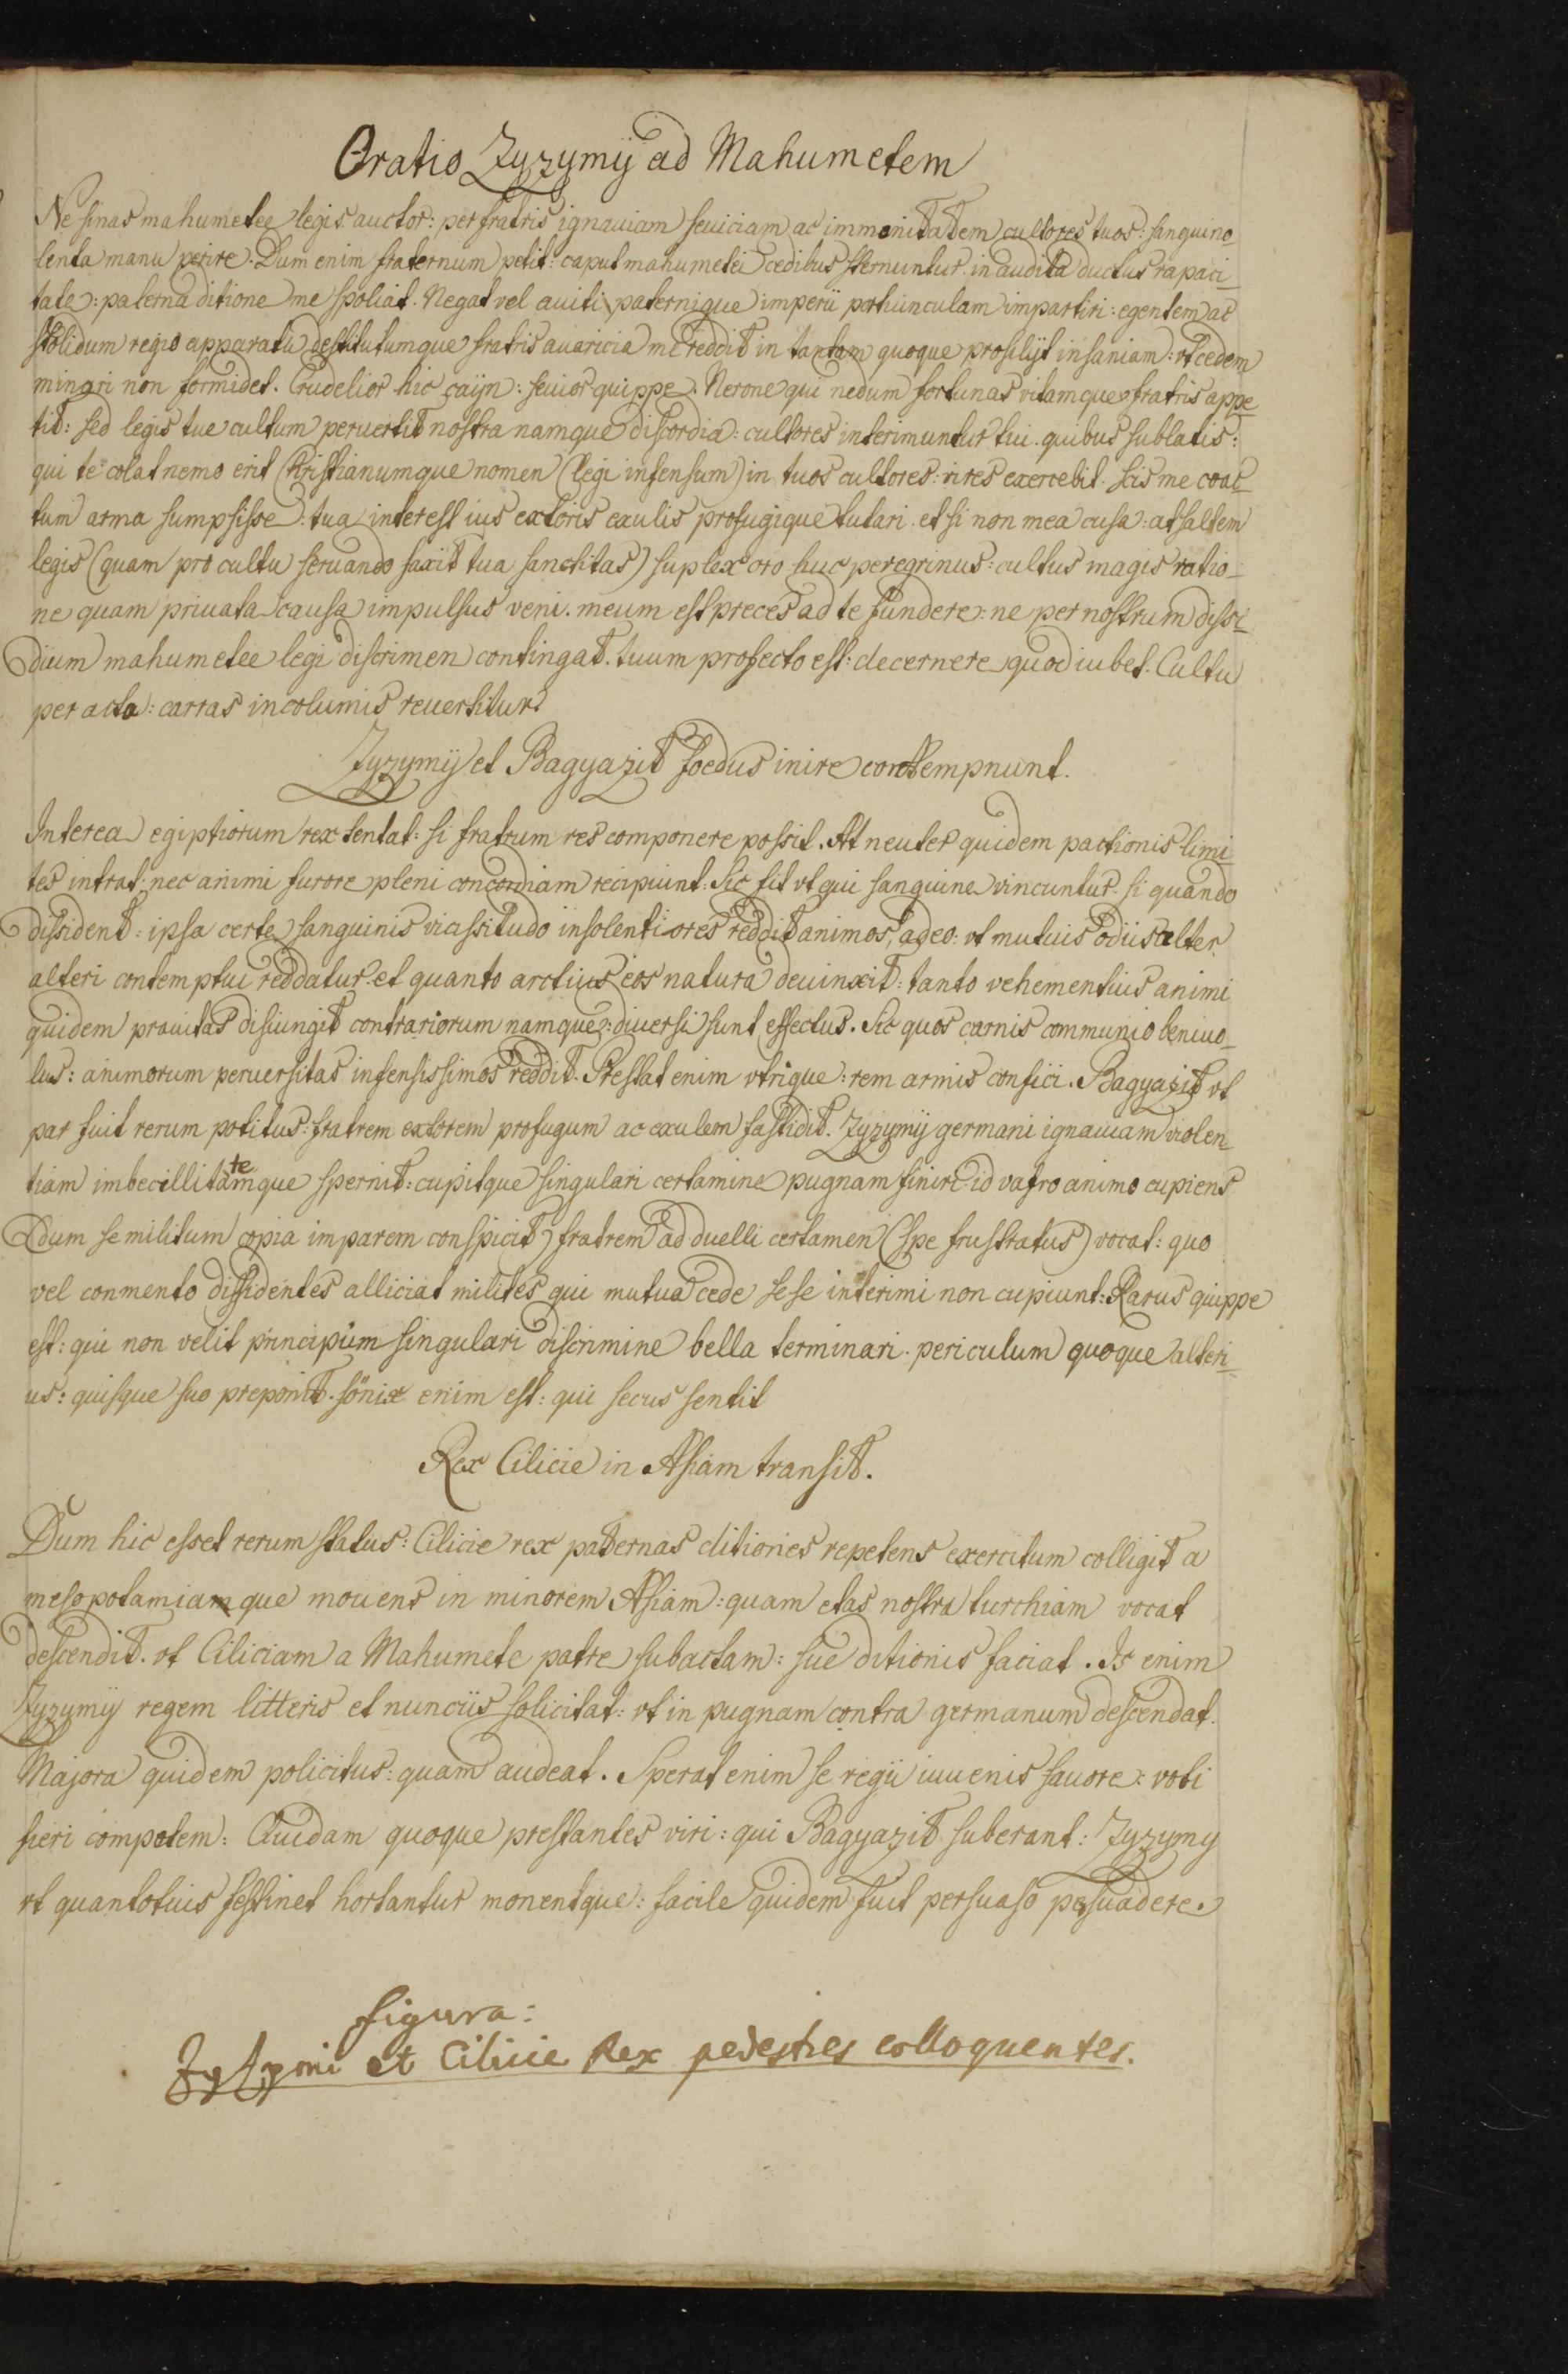 Oratio Zyzymij ad Mahumetem
Ne sinas mahumetee legis auctor: per fratris ignauiam seuiciam ac immanitatem cultores tuos: sanguino_
lenta manu perire. Dum enim fraternum petit: caput mahumetei cedibus sternuntur. in audita ductus rapaci_
tate: paterna ditione me spoliat. Negat vel auiti paternique imperii portiunculam impartiri: egentem ac
stolidum regio apparatu destitutumque fratris auaricia me reddit in tantam quoque prosilijt insaniam: vt cedem
minari non formidet. Crudelior hic cayn: seuior quippe Nerone qui nedum fortunas vitamque fratris appe_
tit: sed legis tue cultum peruertit nostra namque discordia: cultores interimuntur tui. quibus sublatis:
qui te colat nemo erit Christianumque nomen (legi infensum) in tuos cultores: vires exercebit. scis me coac_
tum arma sumpsisse: tua interest ius extoris exulis profugique tutari. et si non mea cusa: at saltem
legis (quam pro cultu seruando saxit tua sanctitas) suplex oro huc peregrinus: cultus magis ratio_
ne quam priuata causa impulsus veni. meum est preces ad te fundere: ne per nostrum dissi_
dium mahumetee legi discrimen contingat. tuum profecto est: decernere quod iubet. Cultu
per acto: carras incolumis reuertitur
Zyzymij et Bagyazit foedus inire contempnunt.
Interea egiptiorum rex tentat: si fratrum res componere possit. At neuter quidem pactionis limi_
tes intrat: nec animi furore pleni concordiam recipiunt. Sic fit vt qui sanguine vincuntur. si quando
dissident: ipsa certe sanguinis vicissitudo insolentiores reddit animos, adeo: vt mutuis odiis alter
alteri contemptui reddatur. et quanto arctius eos natura deuinxit: tanto vehementius animi
quidem prauitas disiungit contrariorum namque: diuersi sunt effectus. Sic quos carnis communio beniuo_
lus: animorum peruersitas infensissimos reddit. Prestat enim vtrique: rem armis confici. Bagyazit vt
par fuit rerum potitus: fratrem extorem profugum ac exulem fastidit. Zyzymij germani ignauiam violen_
tiam imbecillitatemque spernit: cupitque singulari certamine pugnam finire id vafro animo cupiens
Dum se militum copia imparem conspicit) fratrem ad duelli certamen (spe frustratus) vocat: quo
vel conmento dissidentes alliciat milites qui mutua cede sese interimi non cupiunt: Rarus quippe
est: qui non velit principum singulari discrimine bella terminari. periculum quoque alteri_
us: quisque suo preponit. fönix enim est: qui secus sentit
Rex Cilicie in Asiam transit.
Dum hic esset rerum status: Cilicie rex paternas ditiones repetens exercitum colligit a
mesopotamiam que mouens in minorem Asiam: quam etas nostra turchiam vocat
descendit. vt Ciliciam a Mahumete patre subactam: sue ditionis faciat. Is enim
Zyzymij regem litteris et nunciis solicitat: vt in pugnam contra germanum descendat.
Majora quidem policitus: quam audeat. Sperat enim se regii iuuenis fauore: voti
fieri compotem: Quidam quoque prestantes viri: qui Bagyazit suberant: Zyzymy
vt quantotius festinet hortantur monentque: facile quidem fuit persuaso persuadere.
figura:
Zyzymi et Cilicie Rex pedestres colloquentes.